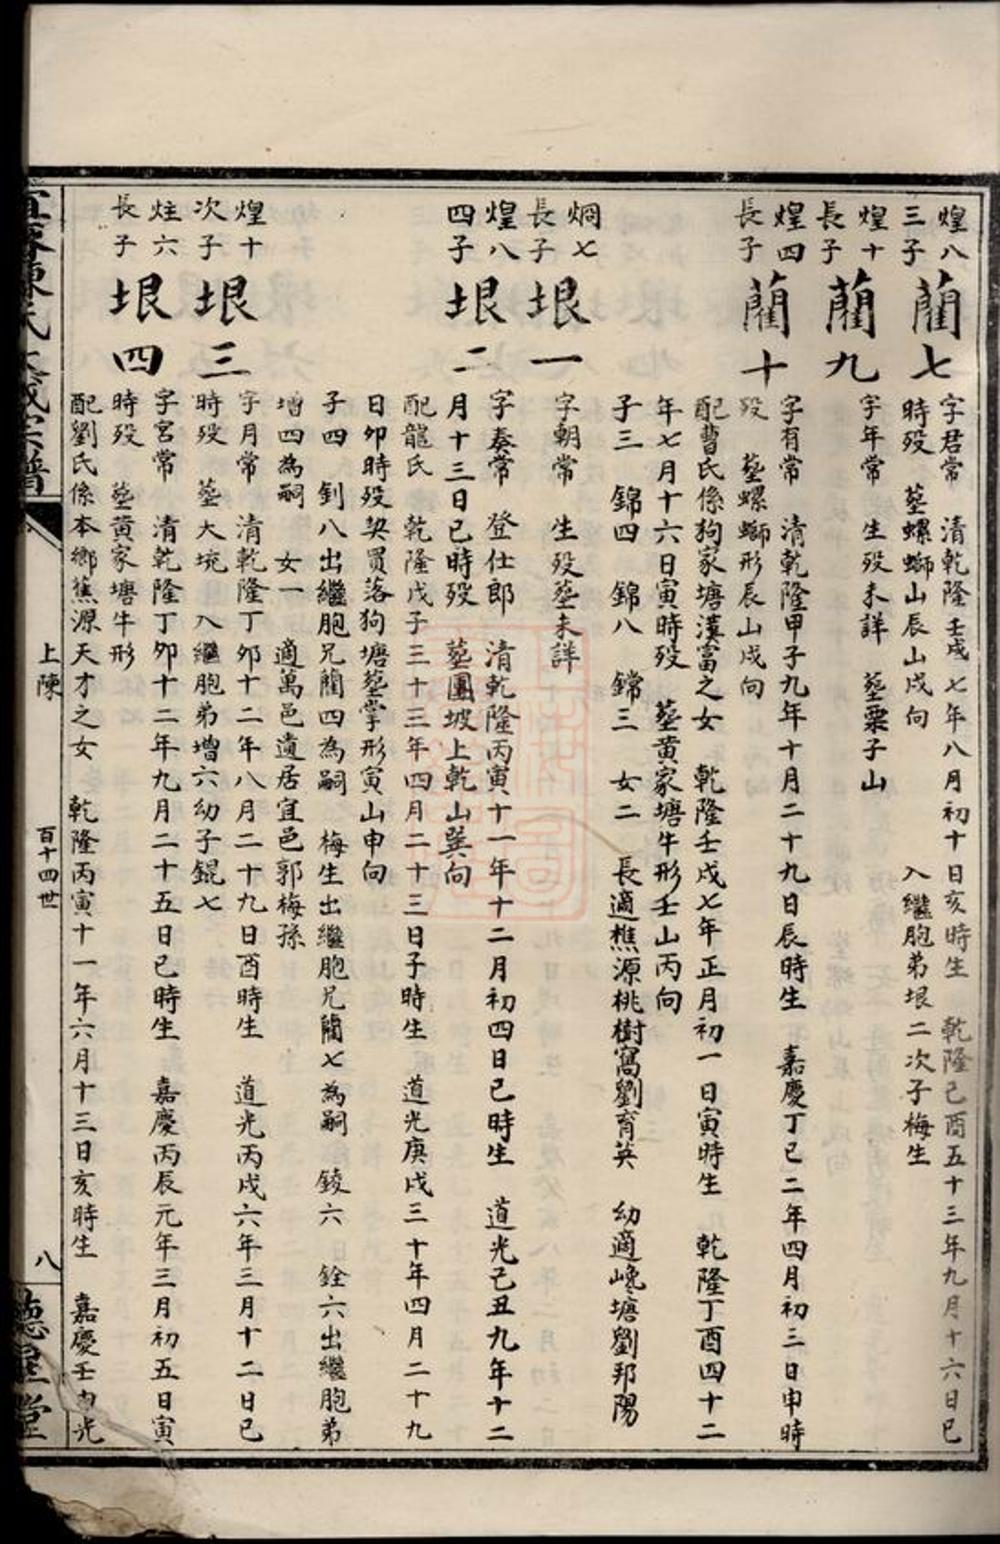 煌八
三子
藺七
字君常　清乾隆壬戌七年八月初十日亥時生　乾隆己酉五十三年九月十六日巳
時殁　塟螺螄山辰山戌向　入繼胞弟垠二次子梅生
煌十
長子
藺九
字年常　生殁未詳　塟粟子山
煌四
長子
藺十
字有常　清乾隆甲子九年十月二十九日辰時生　嘉慶丁巳二年四月初三日申時
殁　塟螺螄形辰山戌向
配曹氏係狗家塘漢富之女　乾隆壬戌七年正月初一日寅時生　乾隆丁酉四十二
年七月十六日寅時殁　塟黄家塘牛形壬山丙向
子三　錦四　錦八　錦三　女二　長適樵源桃樹窩劉育英　幼適巉塘劉邦陽
烱七
長子
垠一
字朝常　生殁塟未詳
煌八
四子
垠二
字奏常　登仕郎　清乾隆丙寅十一年十二月初四日巳時生　道光己丑九年十二
月十三日巳時殁　塟團坡上乾山巽向
配龍氏　乾隆戊子三十三年四月二十三日子時生　道光庚戌三十年四月二十九
日夘時殁契買落狗塘塟掌形寅山申向
子四　釗八出繼胞兄藺四為嗣　梅生出繼胞兄藺七為嗣　錂六　銓六出繼胞弟
增四為嗣　女一　適萬邑遺居宜邑郭梅孫
煌十
次子
垠三
字月常　清乾隆丁夘十二年八月二十九日酉時生　道光丙戌六年三月十二日巳
時殁　塟大坑　入繼胞弟增六幼子錕七
炷六
長子
垠四
字宮常　清乾隆丁夘十二年九月二十五日巳時生　嘉慶丙辰元年三月初五日寅
時殁　塟黄家塘牛形
配劉氏係本鄉蕉源天才之女　乾隆丙寅十一年六月十三日亥時生　嘉慶壬
上陳
百十四世
八
德星堂